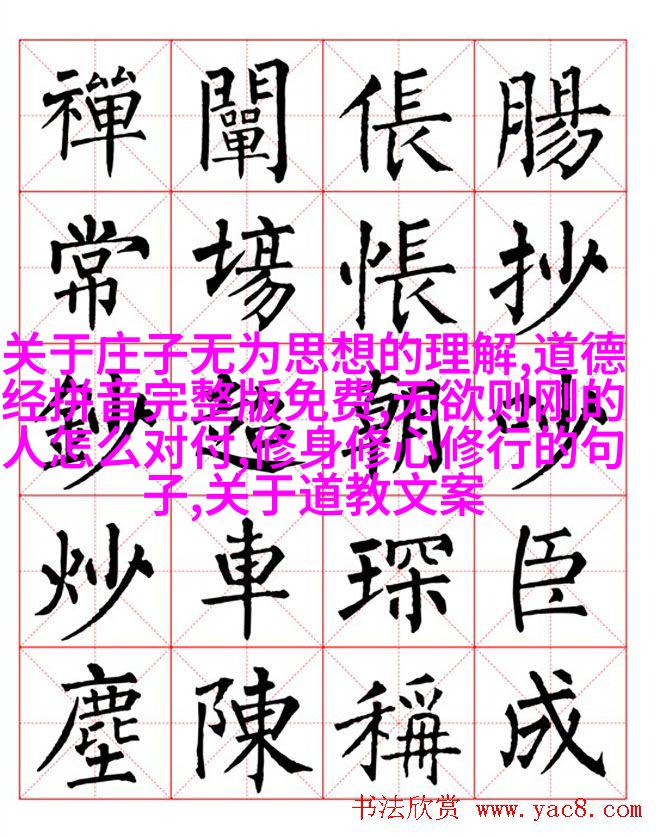 禪闡倀腸
常場悵抄
鈔超朝吵
炒車琛臣
塵陳稱成
关于庄子无为思想的理解,道德
经拼音完整版免费,无欲则刚的
人怎么对付,修身修心修行的句
子,关于道教文案
书法欣赏 www.yac8.com